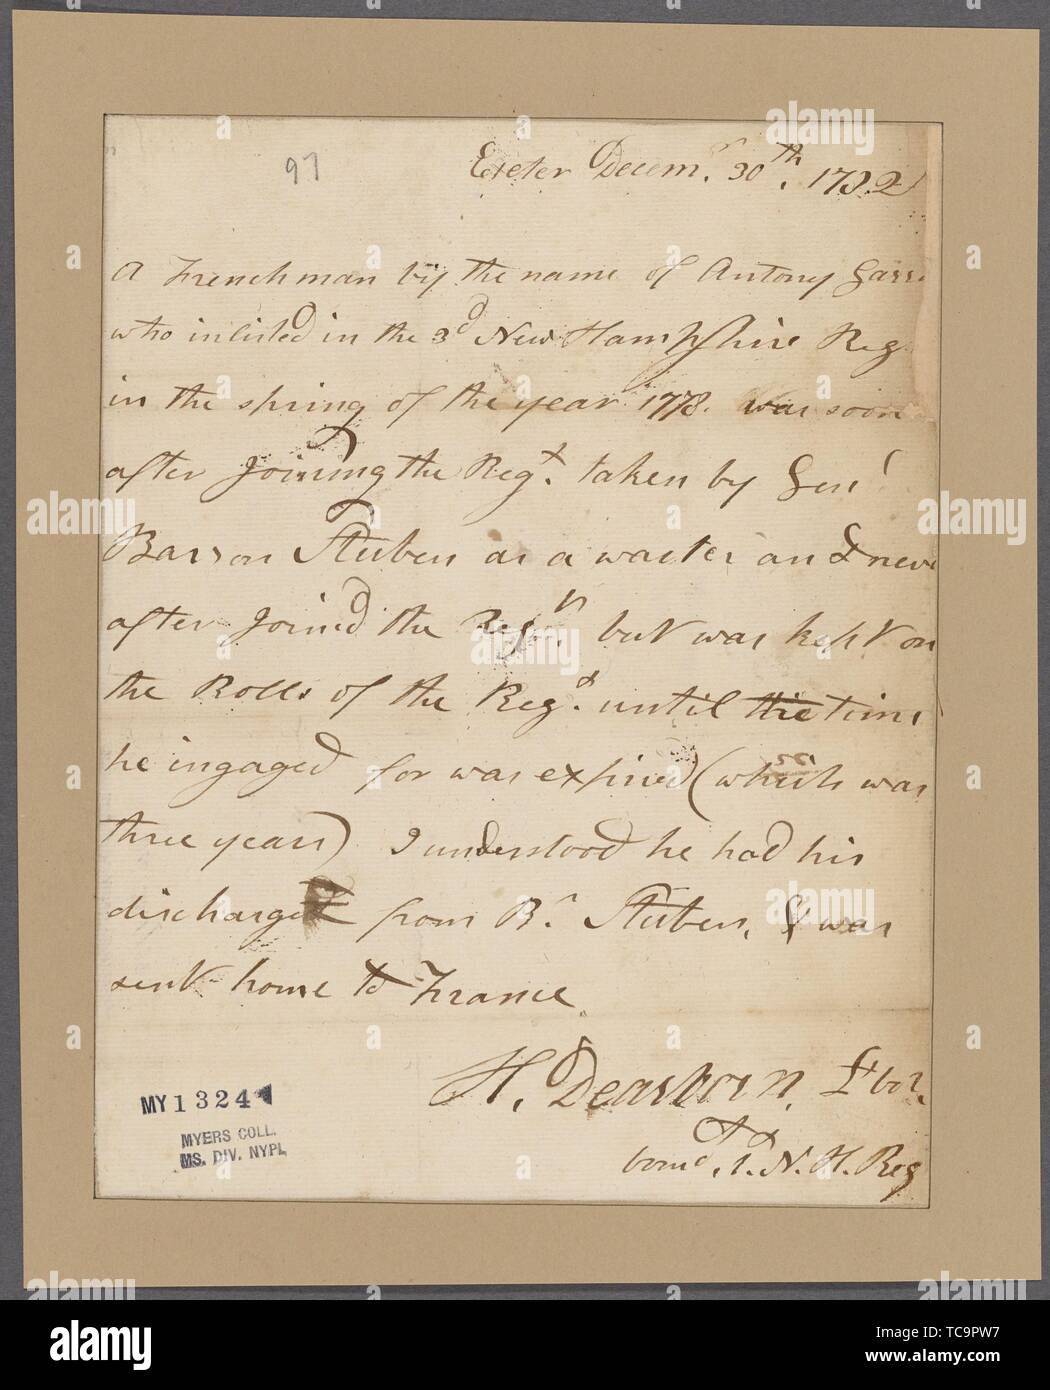 97
Exeter Decemr. 30th. 1782
A Frenchman by the name of Antony
who inlisted in the 3d New Hampshire Reg
in the spring of the year 1778. was soon
after Joining the Regt. taken by Genl
Barron Stuben as a waiter and neve
after Joined the Regn. but was kept on
the Rolls of the Regt. until the time
he ingaged for was expired (which was
three years) I understood he had his
discharge from Br. Stuben, & was
sent home to France.
H. Dearborn, Lt Col.
comdt. 1t N. H. Reg
MY1324
MYERS COLL.
MS. DIV. NYPL
alamy
Image ID: TC9PW7
www.alamy.com